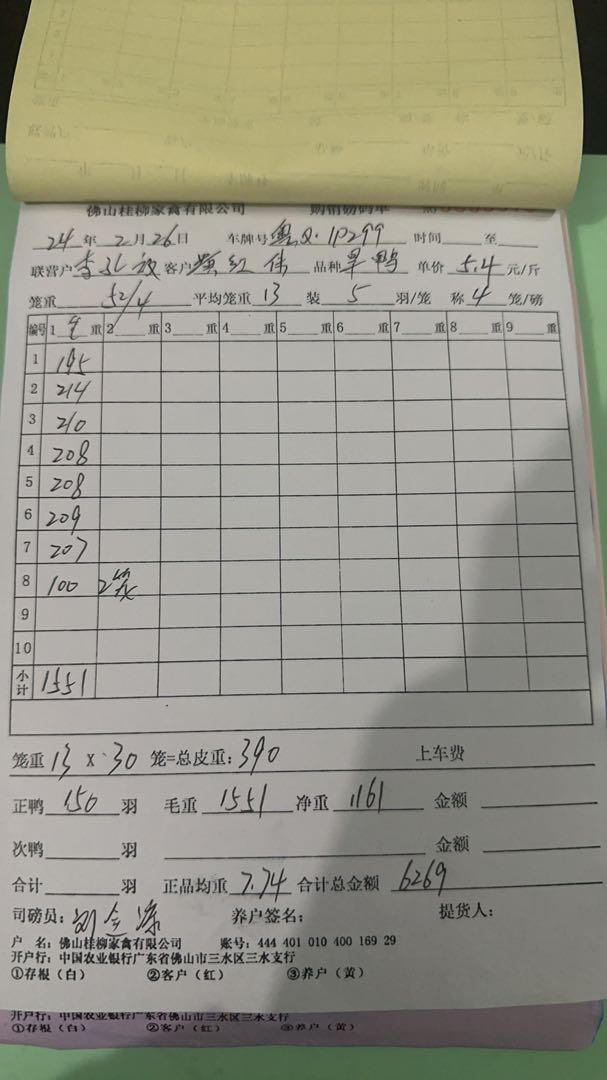 佛山桂柳家禽有限公司 购销磅码单
24年2月26日 车牌号粤Q·1P299 时间 至
联营户 客户 红伟 品种旱鸭 单价5.4元/斤
笼重52/4 平均笼重13 装5羽/笼 称4笼/磅
编号 1毛重 2重 3重 4重 5重 6重 7重 8重 9重
1 195
2 214
3 210
4 208
5 208
6 209
7 207
8 100 2笼
9
10
小计 1551
笼重13×30笼=总皮重:390 上车费
正鸭150羽 毛重1551 净重1161 金额
次鸭 羽 金额
合计 羽 正品均重7.74 合计总金额6269
司磅员: 养户签名: 提货人:
户 名:佛山桂柳家禽有限公司 账号:444 401 010 400 169 29
开户行:中国农业银行广东省佛山市三水区三水支行
①存根(白) ②客户(红) ③养户(黄)
开户行:中国农业银行广东省佛山市三水区三水支行
①存根(白) ②客户(红) ③养户(黄)